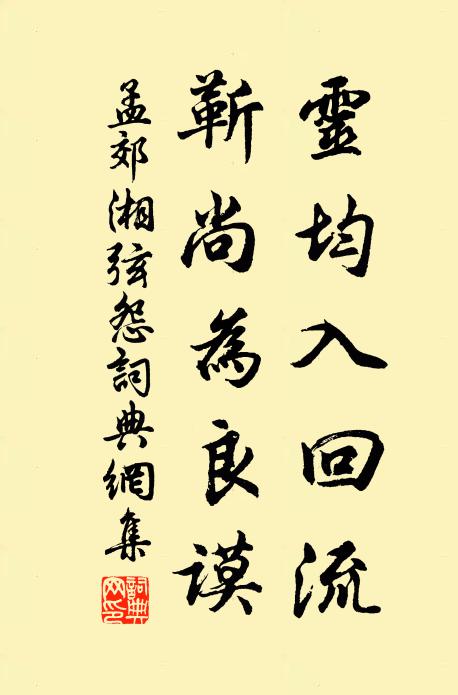 靈均入回流
蘄尚為良謨
孟郊湘弦怨詞典網集
詞典網印